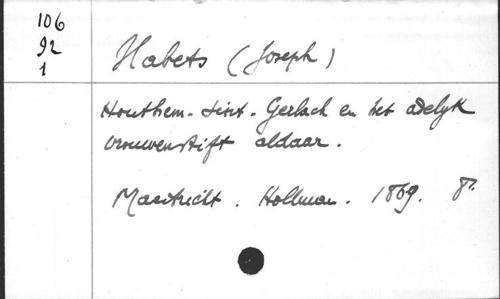 106
92
1
Habets (Joseph)
Houthem-Sint-Gerlach en het adelyk
vrouwenstift aldaar.
Maestricht. Hollman. 1869. 8°.